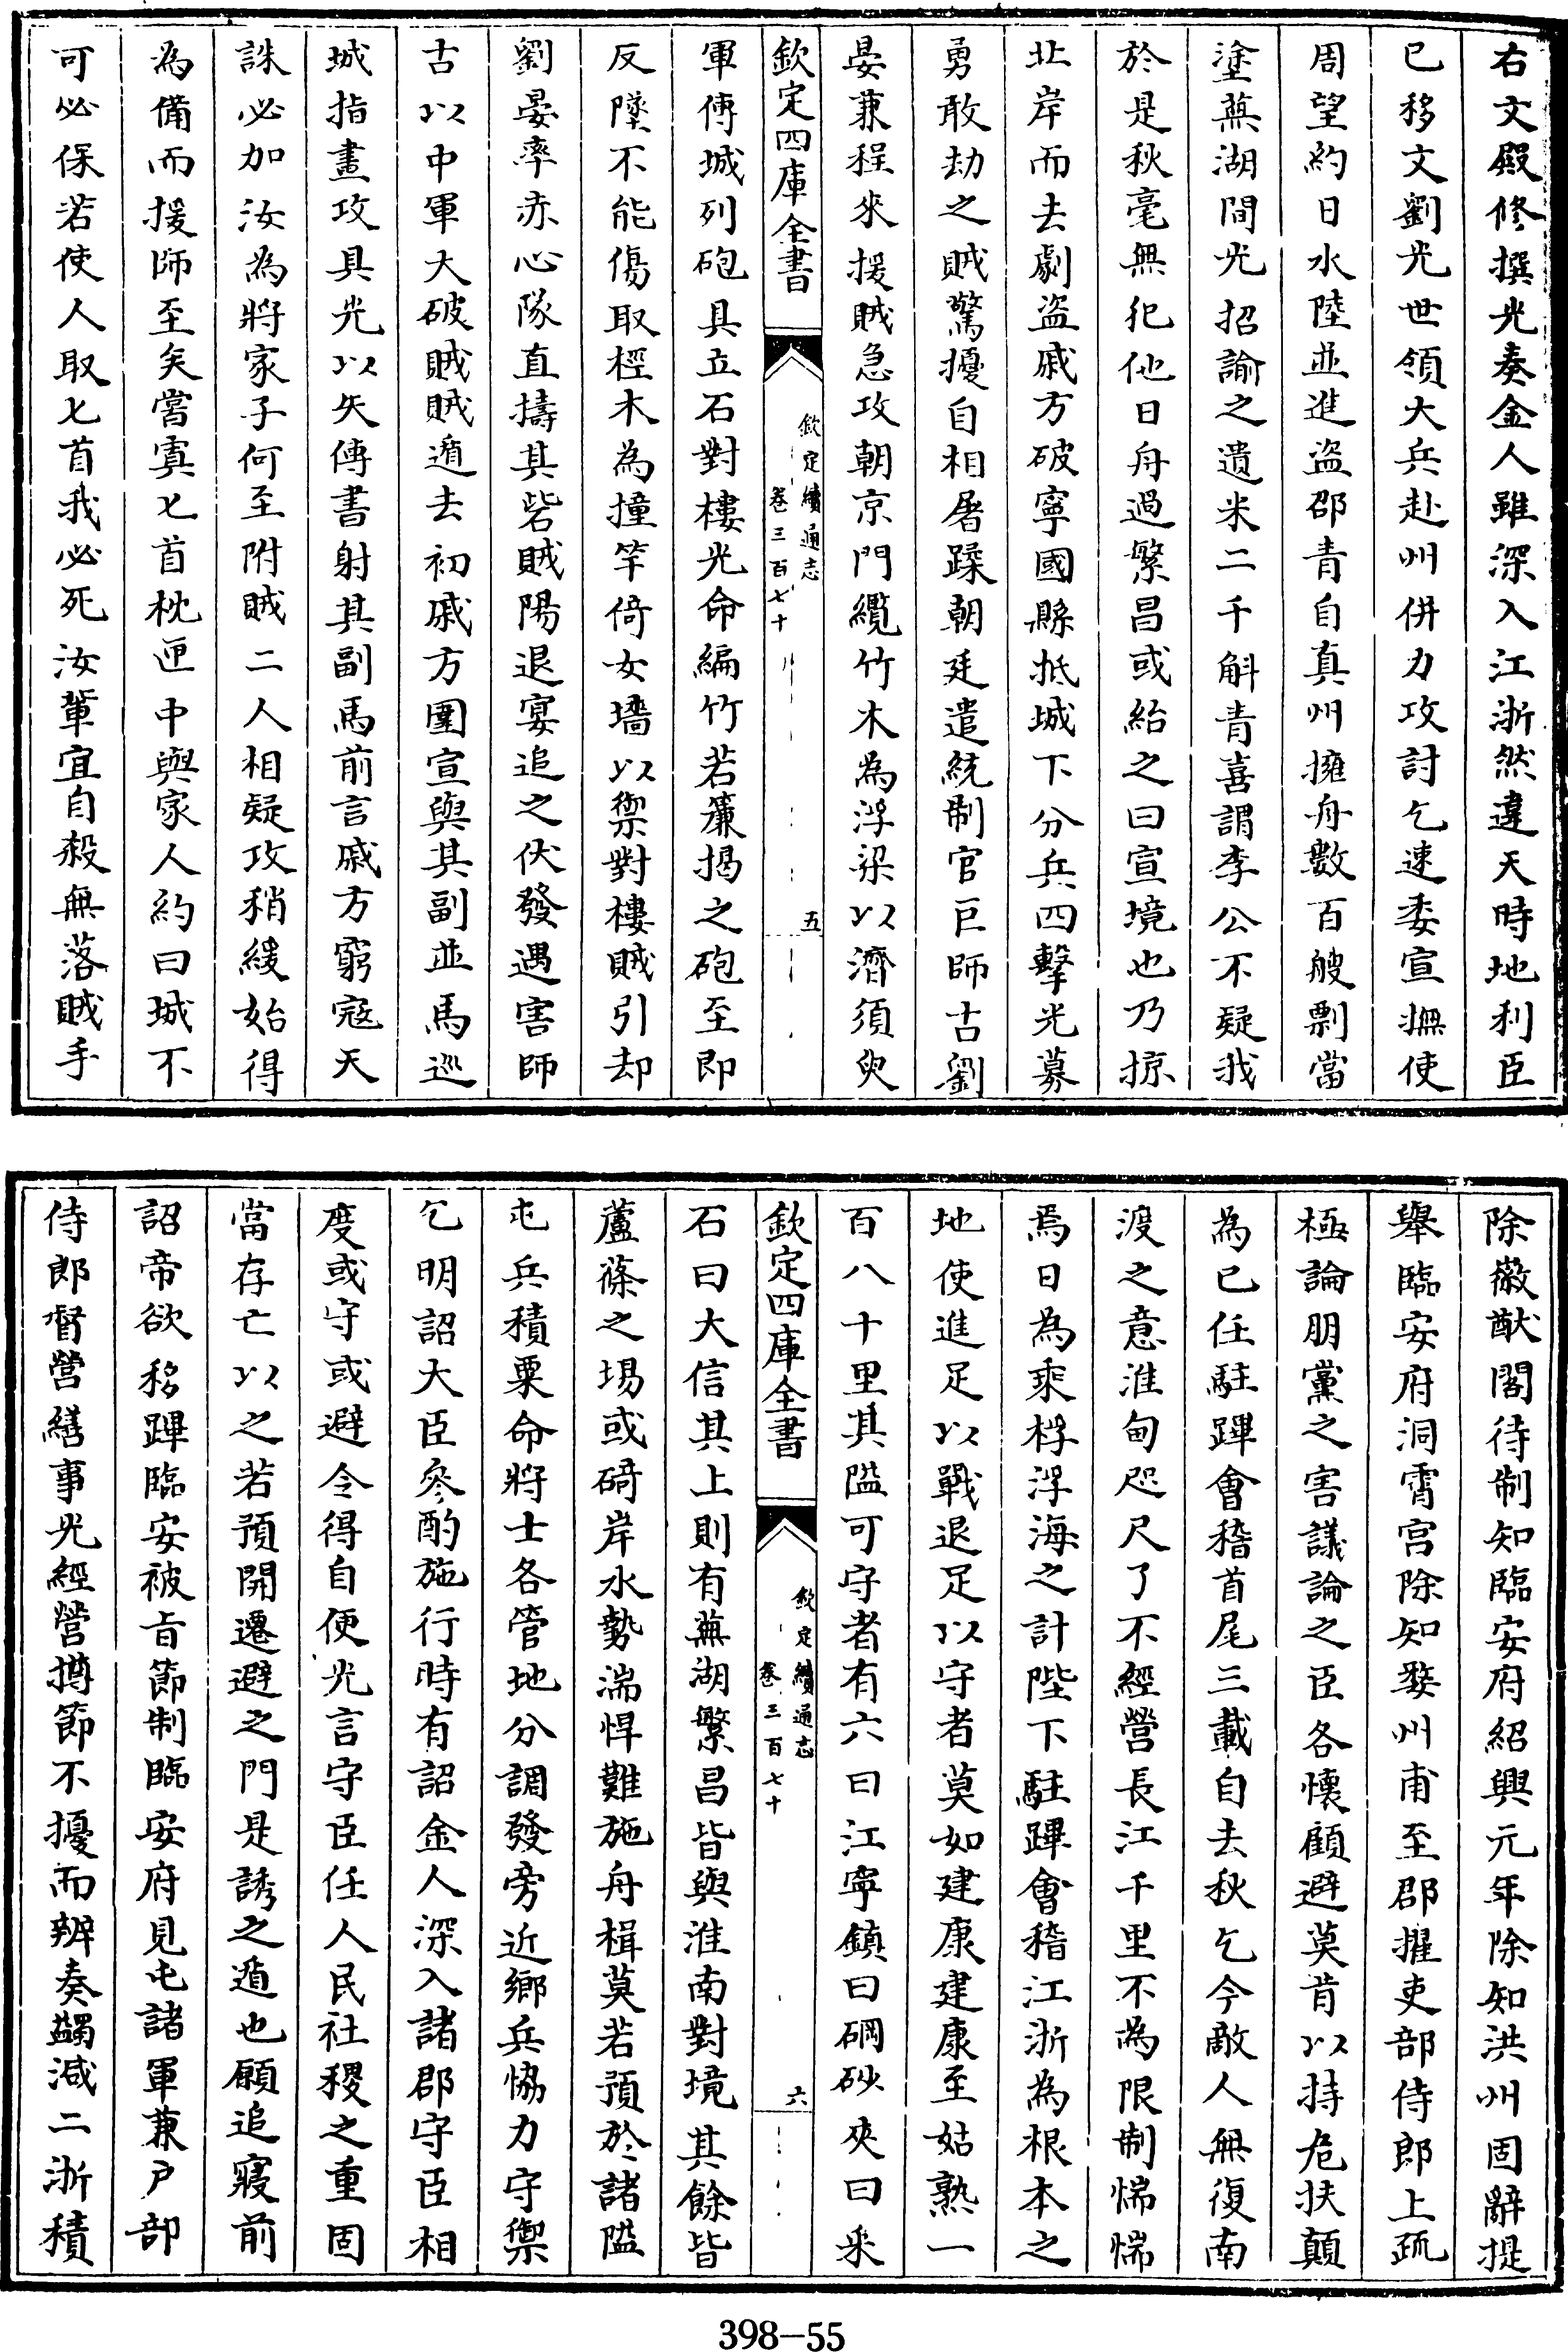 右文殿修撰光奏金人雖深入江浙然違天時地利臣
已移文劉光世領大兵赴州併力攻討乞速委宣撫使
周望約日水陸並進盜邵青自真州擁舟數百艘剽當
塗蕪湖間光招諭之遺米二千斛青喜謂李公不疑我
於是秋毫無犯他日舟過繁昌或紿之曰宣境也乃掠
北岸而去劇盜戚方破寧國縣抵城下分兵四擊光募
勇敢劫之賊驚擾自相屠蹂朝廷遣統制官巨師古劉
晏兼程來援賊急攻朝京門纜竹木為浮梁以濟須臾
欽定四庫全書
欽定續通志
卷三百七十
五
軍傅城列砲具立石對樓光命編竹若簾揭之砲至即
反墜不能傷取桱木為撞竿倚女墻以禦對樓賊引却
劉晏率赤心隊直擣其砦賊陽退宴追之伏發遇害師
古以中軍大破賊賊遁去初戚方圍宣與其副並馬巡
城指畫攻具光以矢傳書射其副馬前言戚方窮寇天
誅必加汝為將家子何至附賊二人相疑攻稍緩始得
為備而援師至矣嘗寘匕首枕匣中與家人約曰城不
可必保若使人取匕首我必死汝輩宜自殺無落賊手
除徽猷閣待制知臨安府紹興元年除知洪州固辭提
舉臨安府洞霄宮除知婺州甫至郡擢吏部侍郎上疏
極論朋黨之害議論之臣各懷顧避莫肯以持危扶顛
為已任駐蹕會稽首尾三載自去秋乞今敵人無復南
渡之意淮甸咫尺了不經營長江千里不為限制惴惴
焉日為乘桴浮海之計陛下駐蹕會稽江浙為根本之
地使進足以戰退足以守者莫如建康建康至姑熟一
百八十里其隘可守者有六曰江寧鎮曰碙砂夾曰采
欽定四庫全書
欽定續通志
卷三百七十
六
石曰大信其上則有蕪湖繁昌皆與淮南對境其餘皆
蘆篠之場或碕岸水勢湍悍難施舟楫莫若預於諸隘
屯兵積粟命將士各管地分調發旁近鄉兵恊力守禦
乞明詔大臣參酌施行時有詔金人深入諸郡守臣相
度或守或避令得自便光言守臣任人民社稷之重固
當存亡以之若預開遷避之門是誘之遁也願追寢前
詔帝欲移蹕臨安被旨節制臨安府見屯諸軍兼戶部
侍郎督營繕事光經營撙節不擾而辨奏蠲減二浙積
398—55